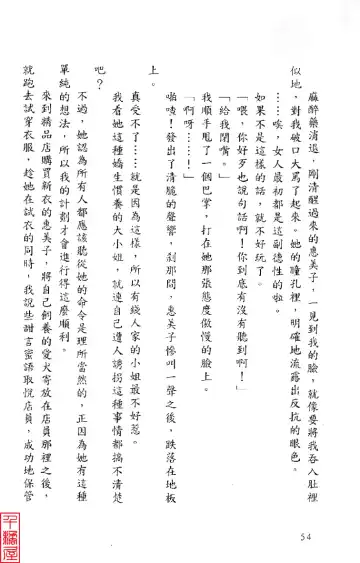 麻醉藥消退，剛清醒過來的惠美子，一見到我的臉，就像要將我吞入肚裡
似地，對我破口大罵了起來。她的瞳孔裡，明確地流露出反抗的眼色。
……唉，女人最初都是這副德性的啦。
如果不是這樣的話，就不好玩了。
「喂，你好歹也說句話啊！你到底有沒有聽到啊！」
「給我閉嘴。」
我順手甩了一個巴掌，打在她那張態度傲慢的臉上。
「啊呀……！」
啪喳！發出了清脆的聲響，剎那間，惠美子慘叫一聲之後，跌落在地板
上。
真受不了……就是因為這樣，所以有錢人家的小姐最不好惹。
我看她這種嬌生慣養的大小姐，就連自己遭人誘拐這種事情都搞不清楚
吧？
不過，她認為所有人都應該聽從她的命令是理所當然的，正因為她有這種
單純的想法，所以我的計劃才會進行得這麼順利。
來到精品店購買新衣的惠美子，將自己飼養的愛犬寄放在店員那裡之後，
就跑去試穿衣服，趁她在試衣的同時，我說些甜言蜜語取悅店員，成功地保管
54
千觴屋